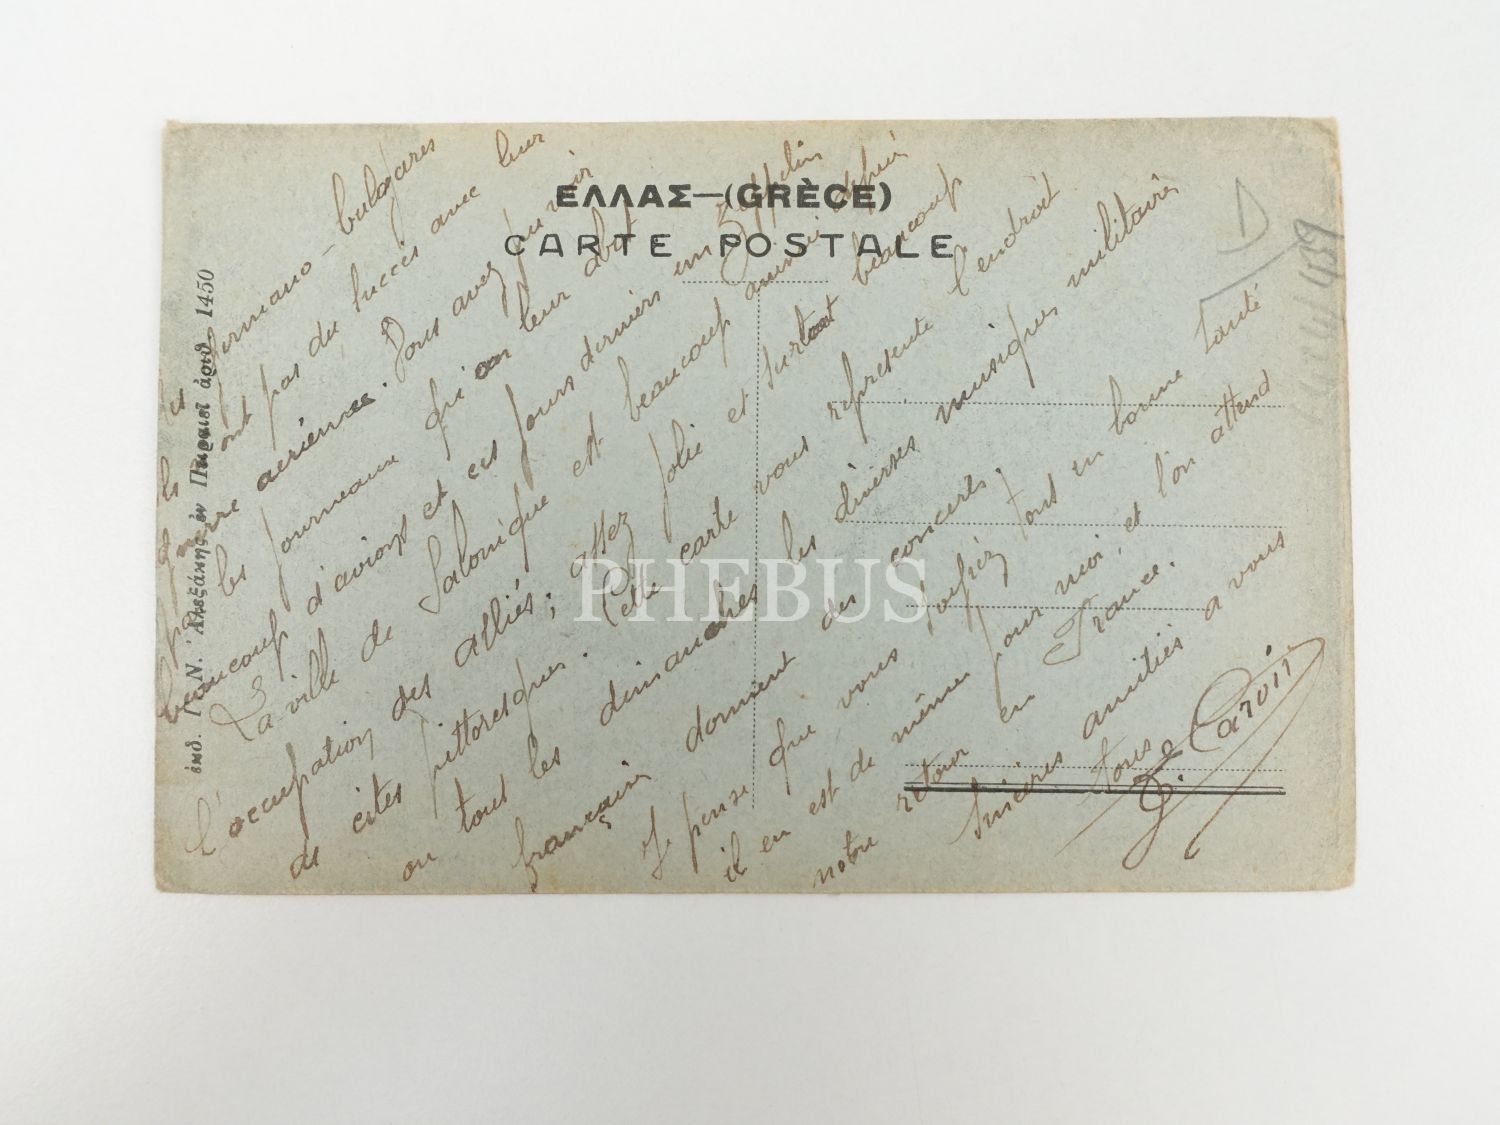 ΕΛΛΑΣ—(GRÈCE)
CARTE POSTALE
ἐκδ. Γ. Ν. Ἀλεξάκης ἐν Πειραιεῖ ἀριθ. 1450
germano-bulgares
ont pas du succès avec leur
guerre aérienne. Vous avez pu voir
les journeaux qu'on leur abat
beaucoup d'avions et ces jours derniers un Zeppelin
La ville de Salonique est beaucoup animée depuis
l'occupation des alliés; assez jolie et surtout beaucoup
de cites pittoresques. Cette carte vous represente l'endroit
ou tout les dimanches les diverses musiques militaires
française donnent des concerts.
Je pense que vous soyiez tout en bonne santé
il en est de même pour moi, et l'on attend
notre retour en France.
Sincères amitiés a vous
tous
PHEBUS